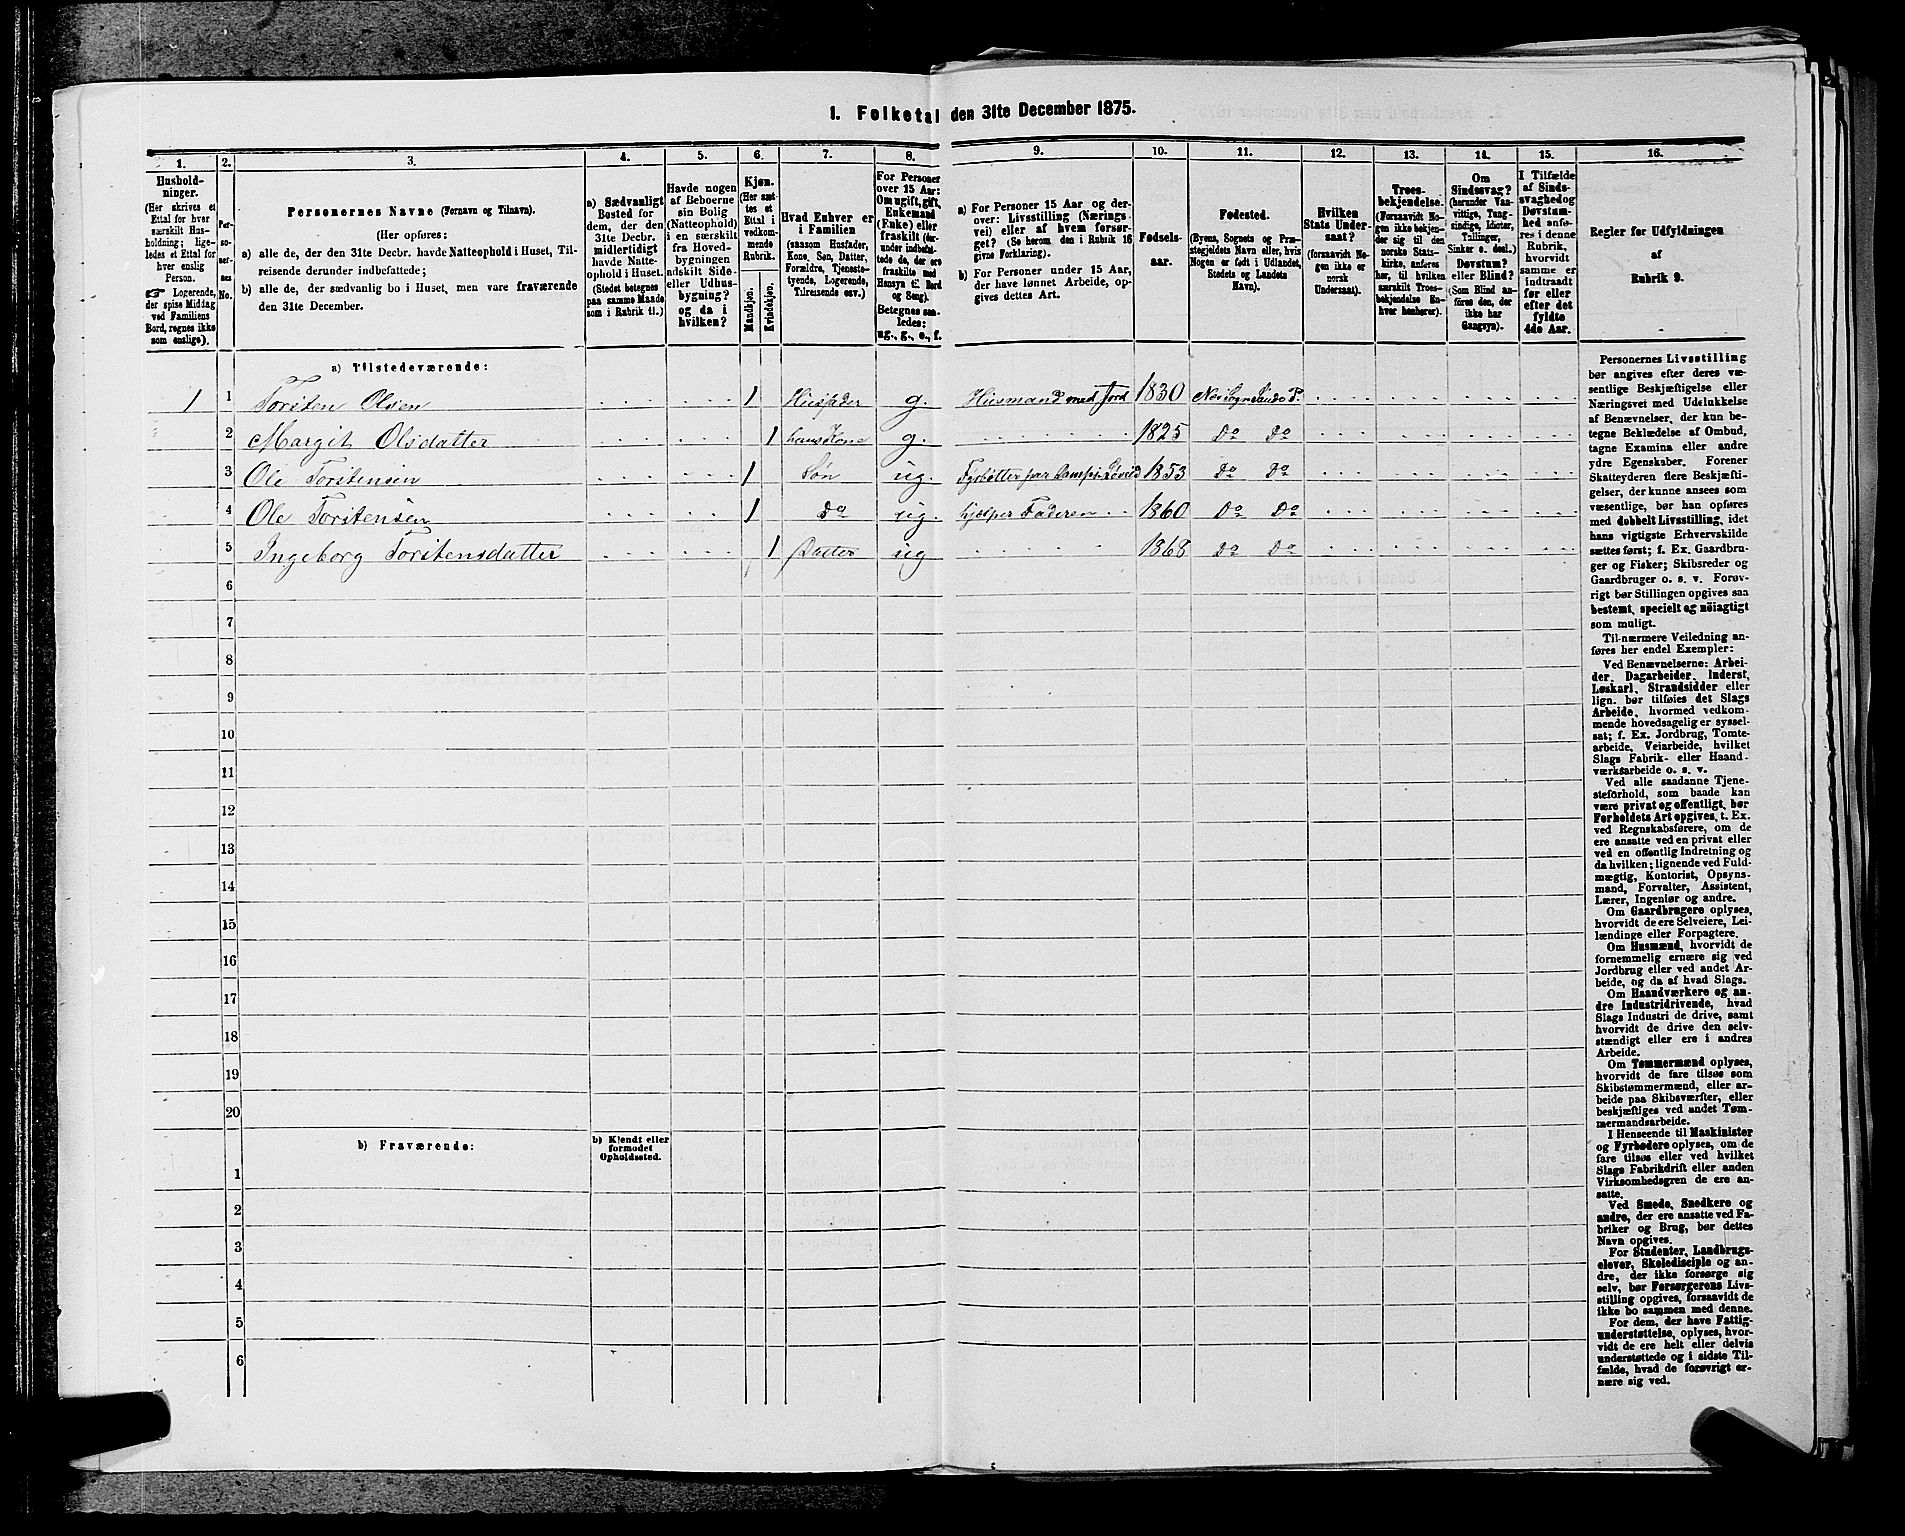 1. Folketal den 31te December 1875.
1. 2. 3. 4. 5. 6. 7. 8. 9. 10. 11. 12. 13. 14. 15. 16.
Hushold-
ninger.
(Her skrives et
Ettal for hver
særskilt Hus-
holdning; lige-
ledes et Ettal for
hver enslig
Person.
☞ Logerende,
der spise Middag
ved Familiens
Bord, regnes ikke
som enslige).
Per-
so-
ner-
nes
No.
Personernes Navne (Fornavn og Tilnavn).
(Her opføres:
a) alle de, der den 31te Decbr. havde Natteophold i Huset, Til-
reisende derunder indbefattede;
b) alle de, der sædvanlig bo i Huset, men vare fraværende
den 31te December.
a) Sædvanligt
Bosted for
dem, der den
31te Decbr.
midlertidigt
havde Natte-
ophold i Huset.
(Stedet betegnes
paa samme Maade
som i Rubrik 11.)
Havde nogen
af Beboerne
sin Bolig
(Natteophold)
i en særskilt
fra Hoved-
bygningen
adskilt Side-
eller Udhus-
bygning?
og da i
hvilken?
Kjøn.
(Her sæt-
tes et
Ettal i
vedkom-
mende
Rubrik.
Mandkjøn.
Kvindekjøn.
Hvad Enhver er
i Familien
(saasom Husfader,
Kone, Søn, Datter,
Forældre, Tjeneste-
tyende, Logerende,
Tilreisende osv.)
For Personer
over 15 Aar:
Om ugift, gift,
Enkemand
(Enke) eller
fraskilt (der-
under indbefat-
tede de, der ere
fraskilte med
Hensyn til Bord
og Seng).
Betegnes saa-
ledes:
ug., g., e., f.
a) For Personer 15 Aar og der-
over: Livsstilling (Nærings-
vei) eller af hvem forsør-
get? (Se herom den i Rubrik 16
givne Forklaring).
b) For Personer under 15 Aar,
der have lønnet Arbeide, op-
gives dettes Art.
Fødsels-
aar.
Fødested.
(Byens, Sognets og Præ-
stegjeldets Navn eller, hvis
Nogen er født i Udlandet,
Stedets og Landets
Navn).
Hvilken
Stats Under-
saat?
(forsaavidt No-
gen ikke er
norsk
Undersaat).
Troes-
bekjendelse.
(Forsaavidt No-
gen ikke bekjen-
der sig til den
norske Stats-
kirke, anføres
her, til hvilken
særskilt Troes-
bekjendelse En-
hver henhører).
Om
Sindssvag?
(herunder Van-
vittige, Tung-
sindige, Idioter,
Tullinger,
Sinker o. desl.)
Døvstum?
eller Blind?
(Som Blind an-
føres den, der
ikke har
Gangsyn).
I Tilfælde
af Sinds-
svaghed og
Døvstum-
hed anfø-
res i denne
Rubrik,
hvorvidt
samme er
indtraadt
før eller
efter det
fyldte
4de Aar.
Regler for Udfyldningen
af
Rubrik 9.
a) Tilstedeværende:
1 1 Torsten Olsen 1 Husfader g. Husmand med Jord 1830
2 Margit Olsdatter 1 hans Kone g. 1825 Do Do
3 Ole Torstensen 1 Søn ug. 1853 Do Do
4 Ole Torstensen 1 Do ug. hjelper Faderen 1860 Do Do
5 Ingeborg Torstensdatter 1 Datter ug 1868 Do Do
6
7
8
9
10
11
12
13
14
15
16
17
18
19
20
b) Fraværende:
b) Kjendt eller
formodet
Opholdssted.
1
2
3
4
5
6
Personernes Livsstilling
bør angives efter deres væ-
sentlige Beskjæftigelse eller
Næringsvei med Udelukkelse
af Benævnelser, der kun be-
tegne Beklædelse af Ombud,
tagne Examina eller andre
ydre Egenskaber. Forener
Skatteyderen flere Beskjæfti-
gelser, der kunne ansees som
væsentlige, bør han opføres
med dobbelt Livsstilling, idet
hans vigtigste Erhvervskilde
sættes først; f. Ex. Gaardbru-
ger og Fisker; Skibsreder og
Gaardbruger o. s. v. Forøv-
rigt bør Stillingen opgives saa
bestemt, specielt og nöiagtigt
som muligt.
Til nærmere Veiledning an-
føres her endel Exempler:
Ved Benævnelserne: Arbei-
der, Dagarbeider, Inderst,
Løskarl, Strandsidder eller
lign. bør tilføies det Slags
Arbeide, hvormed vedkom-
mende hovedsagelig er syssel-
sat; f. Ex. Jordbrug, Tomte-
arbeide, Veiarbeide, hvilket
Slags Fabrik- eller Haand-
værksarbeide o. s. v.
Ved alle saadanne Tjene-
steforhold, som baade kan
være privat og offentligt, bør
Forholdets Art opgives, t. Ex.
ved Regnskabsførere, om de
ere ansatte ved en privat eller
ved en offentlig Indretning og
da hvilken; lignende ved Fuld-
mægtig, Kontorist, Opsyns-
mand, Forvalter, Assistent,
Lærer, Ingeniør og andre.
Om Gaardbrugere oplyses,
hvorvidt de ere Selveiere, Lei-
lændinge eller Forpagtere.
Om Husmænd, hvorvidt de
fornemmelig ernære sig ved
Jordbrug eller ved andet Ar-
beide, og da af hvad Slags.
Om Haandværkere og an-
dre Industridrivende, hvad
Slags Industri de drive, samt
hvorvidt de drive den selv-
stændigt eller ere i andres
Arbeide.
Om Tømmermænd oplyses,
hvorvidt de fare tilsøs som
Skibstømmermænd, eller ar-
beide paa Skibsværfter, eller
beskjæftiges ved andet Tøm-
mermandsarbeide.
I Henseende til Maskinister
og Fyrbødere oplyses, om de
fare tilsøs eller ved hvilket
Slags Fabrikdrift eller anden
Virksomhedsgren de ere an-
satte.
Ved Smede, Snedkere og
andre, der ere ansatte ved Fa-
briker og Brug, bør dettes
Navn opgives.
For Studenter, Landbrugs-
elever, Skoledisciple og an-
dre, der ikke forsørge sig
selv, bør Forsørgerens Livs-
stilling opgives, forsaavidt de
ikke bo sammen med denne.
For dem, der have Fattig-
understøttelse, oplyses, hvor-
vidt de ere helt eller delvis
understøttede og i sidste Til-
fælde, hvad de forøvrigt er-
nære sig ved.